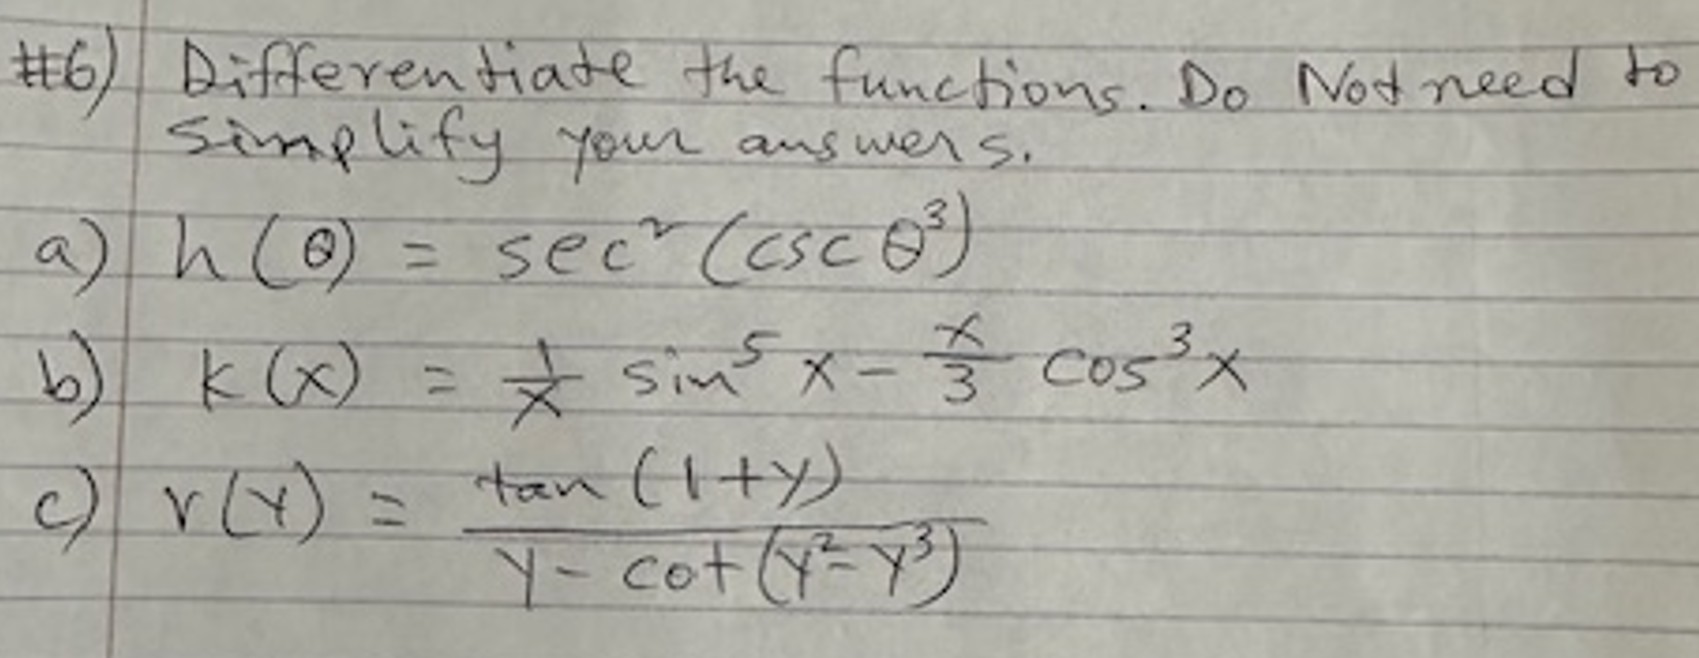 #6) Differentiate the functions. Do Not need to
simplify your answers.
a) h(θ) = sec² (csc θ³)
b) k(x) = 1/x sin⁵ x - x/3 cos³x
c) r(y) = tan (1+y) / y - cot (y² - y³)